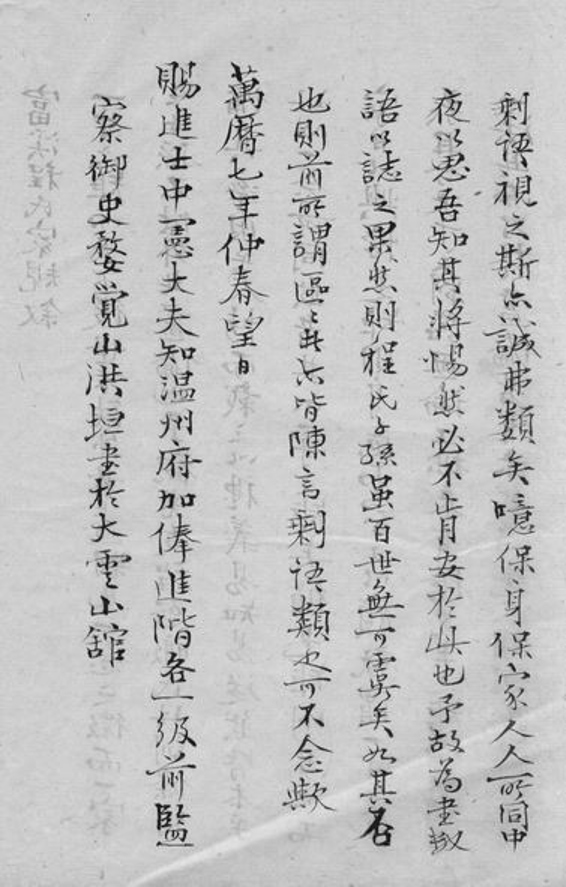 剩語視之斯亦誠弗類矣噫保身保家人人所同中
夜以思吾知其將惕然必不肯安於此也予故為書數
語以誌之果然則程氏子孫虽百世無可虞矣如其否
也則前所謂區〻此亦皆陳言剩語類也可不念歟
萬曆七年仲春望日
賜進士中憲大夫知温州府加俸進階各一級前監
察御史婺覺山洪垣書於大雲山館
富溪程氏家規叙